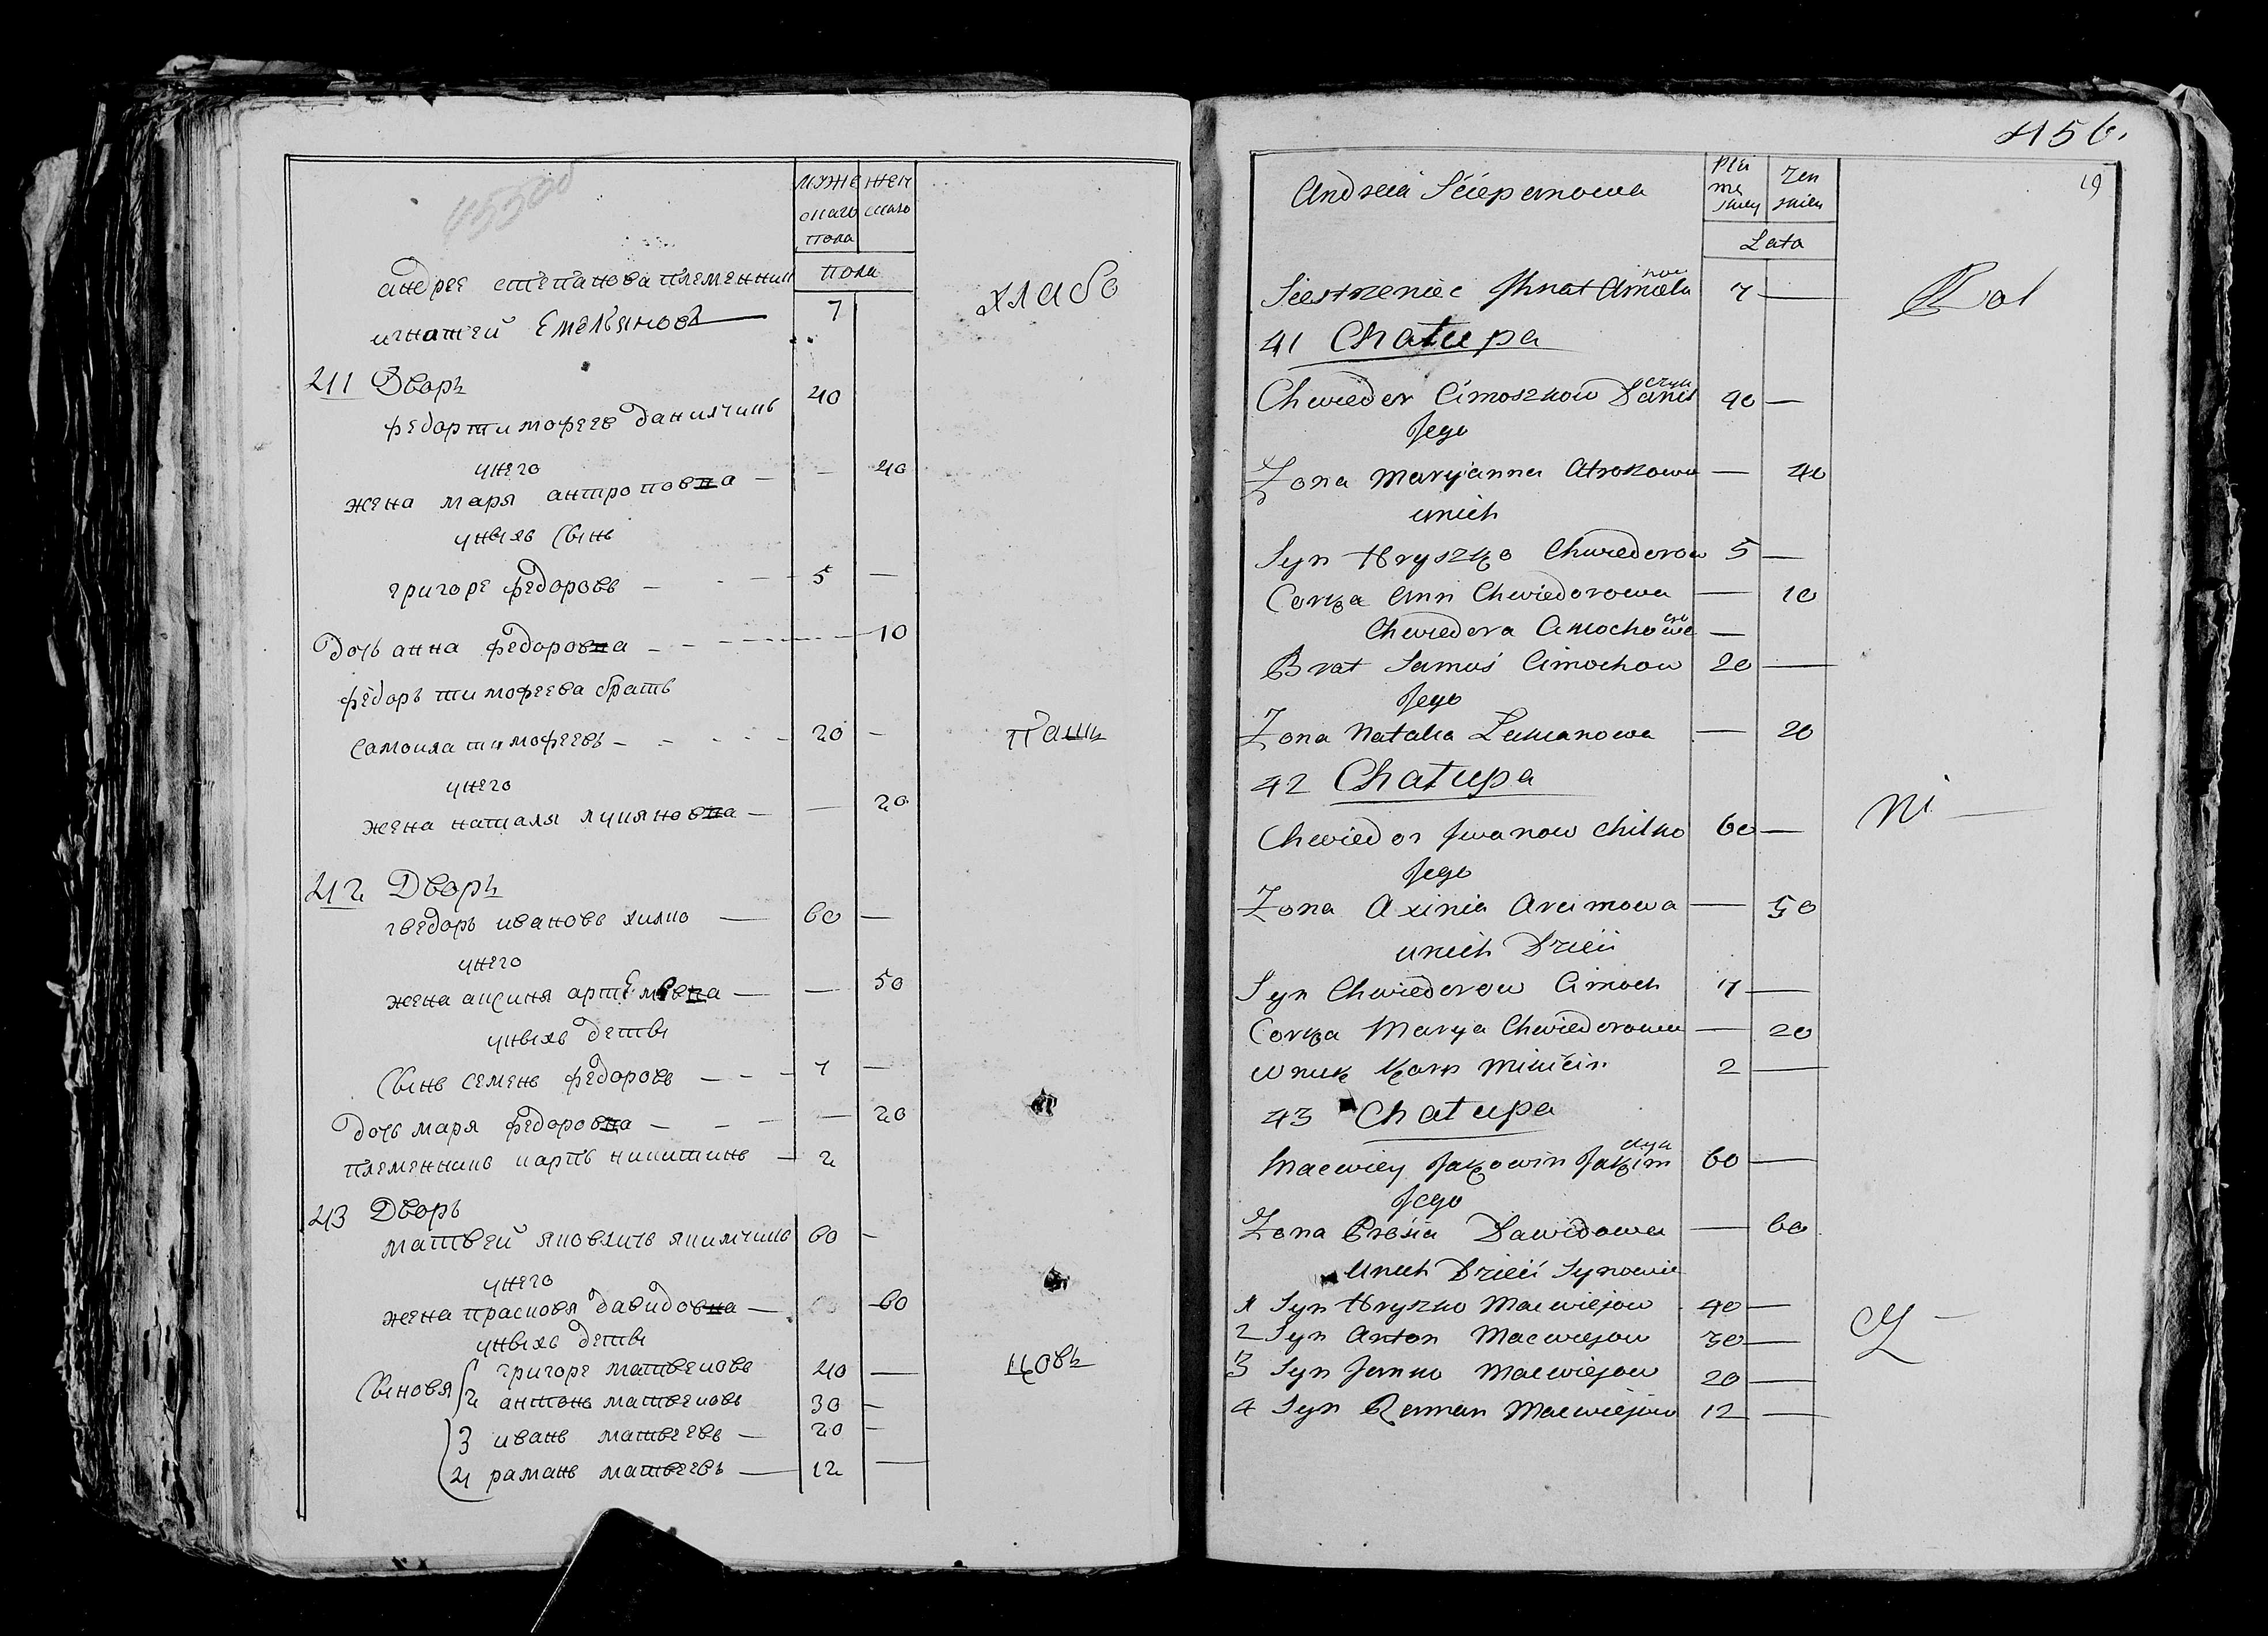 муже
скаго
пола
жен
скаго
пола
андрее степанова племенник
игнатей Емельянов 7
хлабо
41 Дворъ
федор тимофеев данилчикъ 40
у него
жена маря антроповна — — 40
у ныхъ сынъ
григоре федоровъ — 5 —
дочь анна федоровна — 10
федоръ тимофеева братъ
самоила тимофеевъ — 20 —
пашъ
у него
жена наталя лукяновна — — 20
42 Дворъ
гведоръ ивановъ хилко — 60 —
у него
жена аксиня артемовна — — 50
у ныхъ дети
сынъ семенъ федоровъ — 7 —
дочь маря федоровна — — 20
племенникъ карпъ никитинъ — 2
43 Дворъ
матвей яковличъ якимчикъ 60 —
у него
жена прасковя давидовна — 60
у ныхъ дети
сыновя григоре матвеиовъ 40 —
2 антонъ матвеиовъ 30 —
ковъ
3 иванъ матвеевъ — 20 —
4 раманъ матвеевъ — 12 —
456.
19
Andreia Sciepanowa
Plci
mę
skiey
Zen
skiey
Lata
Siestrzeniec Ihnat Amela
now
7 —
Rol
41 Chatupa
Chwieder Cimoszkow Danil
czyk
40 —
Jego
Zona Maryanna Atrokowa — 40
u nich
Syn Hryszko Chwiedorow 5 —
Corka Ann Chwiedorowa — 10
Chwiedora Cimochowa —
Brat Samuś Cimochow 20 —
Jego
Zona Natalia Lukianowa — 20
42 Chatupa
Chwiedor Iwanow Chilko 60 —
Ni —
Jego
Zona Axinia Arcimowa — 50
u nich Dzieci
Syn Chwiedorow Cimoch 7 —
Corka Marya Chwiedorowa — 20
Wnuk Karp Mikicin 2 —
43 Chatupa
Macwiey Jakowin Jakim
czyk
60 —
Jego
Zona Prosia Dawidowa — 60
u nich Dzieci Synowie
1 Syn Hryszko Macwiejow 40 —
2 Syn Anton Macwiejow 30 —
Cy —
3 Syn Janko Macwiejow 20 —
4 Syn Roman Macwiejow 12 —